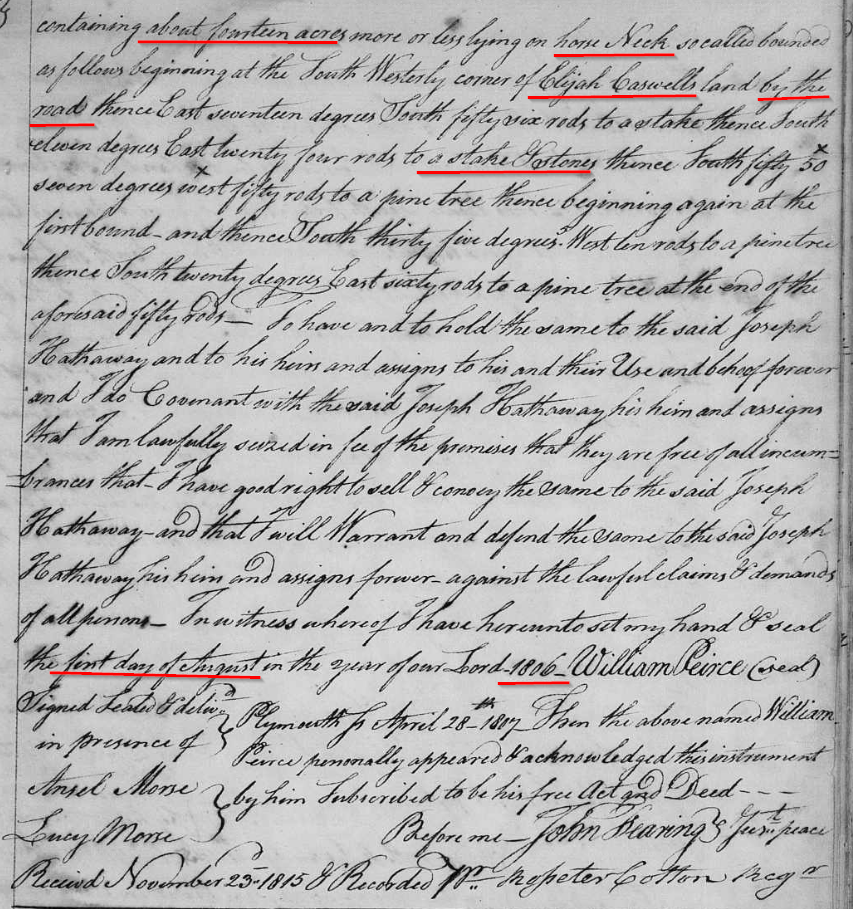 containing about fourteen acres more or less lying on horse Neck so called bounded
as follows beginning at the South Westerly corner of Elijah Caswells land by the
road thence East seventeen degrees South fifty six rods to a stake thence South
eleven degrees East twenty four rods to a stake & stones thence South fifty 50
seven degrees west fifty rods to a pine tree thence beginning again at the
first bound - and thence South thirty five degrees West ten rods to a pine tree
thence South twenty degrees East sixty rods to a pine tree at the end of the
aforesaid fifty rods — To have and to hold the same to the said Joseph
Hathaway and to his heirs and assigns to his and their Use and behoof forever
and I do Covenant with the said Joseph Hathaway his heirs and assigns
that I am lawfully seized in fee of the premises that they are free of all incum=
=brances that - I have good right to sell & convey the same to the said Joseph
Hathaway - and that I will Warrant and defend the same to the said Joseph
Hathaway his heirs and assigns forever - against the lawful claims & demands
of all persons — In witness whereof I have hereunto set my hand & seal
the first day of August in the year of our Lord - 1806 - William Peirce (seal)
Signed Sealed & delivd
in presence of
Ansel Morse
Lucy Morse
Plymouth Ss April 28th 1807 - Then the above named William
Peirce personally appeared & acknowledged this instrument
by him Subscribed to be his free Act and Deed - - - -
Before me - John Fearing Just. peace
Received November 23d 1815 & Recorded Pr Rosseter Cotton Regr